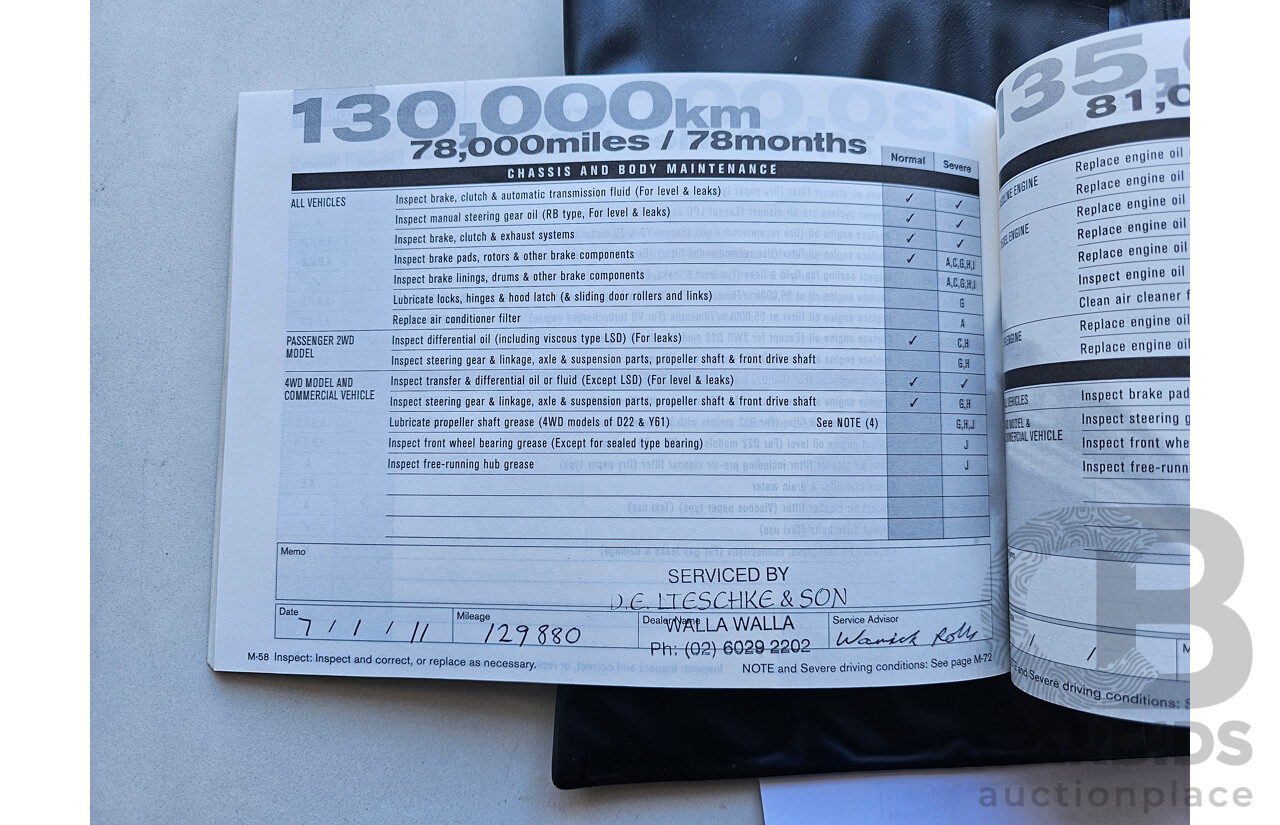 130,000km
78,000miles / 78months
CHASSIS AND BODY MAINTENANCE Normal Severe
ALL VEHICLES Inspect brake, clutch & automatic transmission fluid (For level & leaks) ✓ ✓
Inspect manual steering gear oil (RB type, For level & leaks) ✓ ✓
Inspect brake, clutch & exhaust systems ✓ ✓
Inspect brake pads, rotors & other brake components ✓ A,C,G,H,I
Inspect brake linings, drums & other brake components A,C,G,H,I
Lubricate locks, hinges & hood latch (& sliding door rollers and links) G
Replace air conditioner filter A
PASSENGER 2WD MODEL Inspect differential oil (including viscous type LSD) (For leaks) ✓ C,H
Inspect steering gear & linkage, axle & suspension parts, propeller shaft & front drive shaft G,H
4WD MODEL AND COMMERCIAL VEHICLE Inspect transfer & differential oil or fluid (Except LSD) (For level & leaks) ✓ ✓
Inspect steering gear & linkage, axle & suspension parts, propeller shaft & front drive shaft ✓ G,H
Lubricate propeller shaft grease (4WD models of D22 & Y61) See NOTE (4) G,H,J
Inspect front wheel bearing grease (Except for sealed type bearing) J
Inspect free-running hub grease J
Memo
SERVICED BY
D.E. LIESCHKE & SON
Date 7 / 1 / 11 Mileage 129880 Dealer Name WALLA WALLA Service Advisor
Ph: (02) 6029 2202
M-58 Inspect: Inspect and correct, or replace as necessary. NOTE and Severe driving conditions: See page M-72
135,0
81,0
Replace engine oil
Replace engine oil
Replace engine oil
Replace engine oil
Replace engine oil
Inspect engine oil
Clean air cleaner f
Replace engine oil
Replace engine oil
Inspect brake pad
Inspect steering g
Inspect front whe
Inspect free-runn
and Severe driving conditions: S
auctionplace